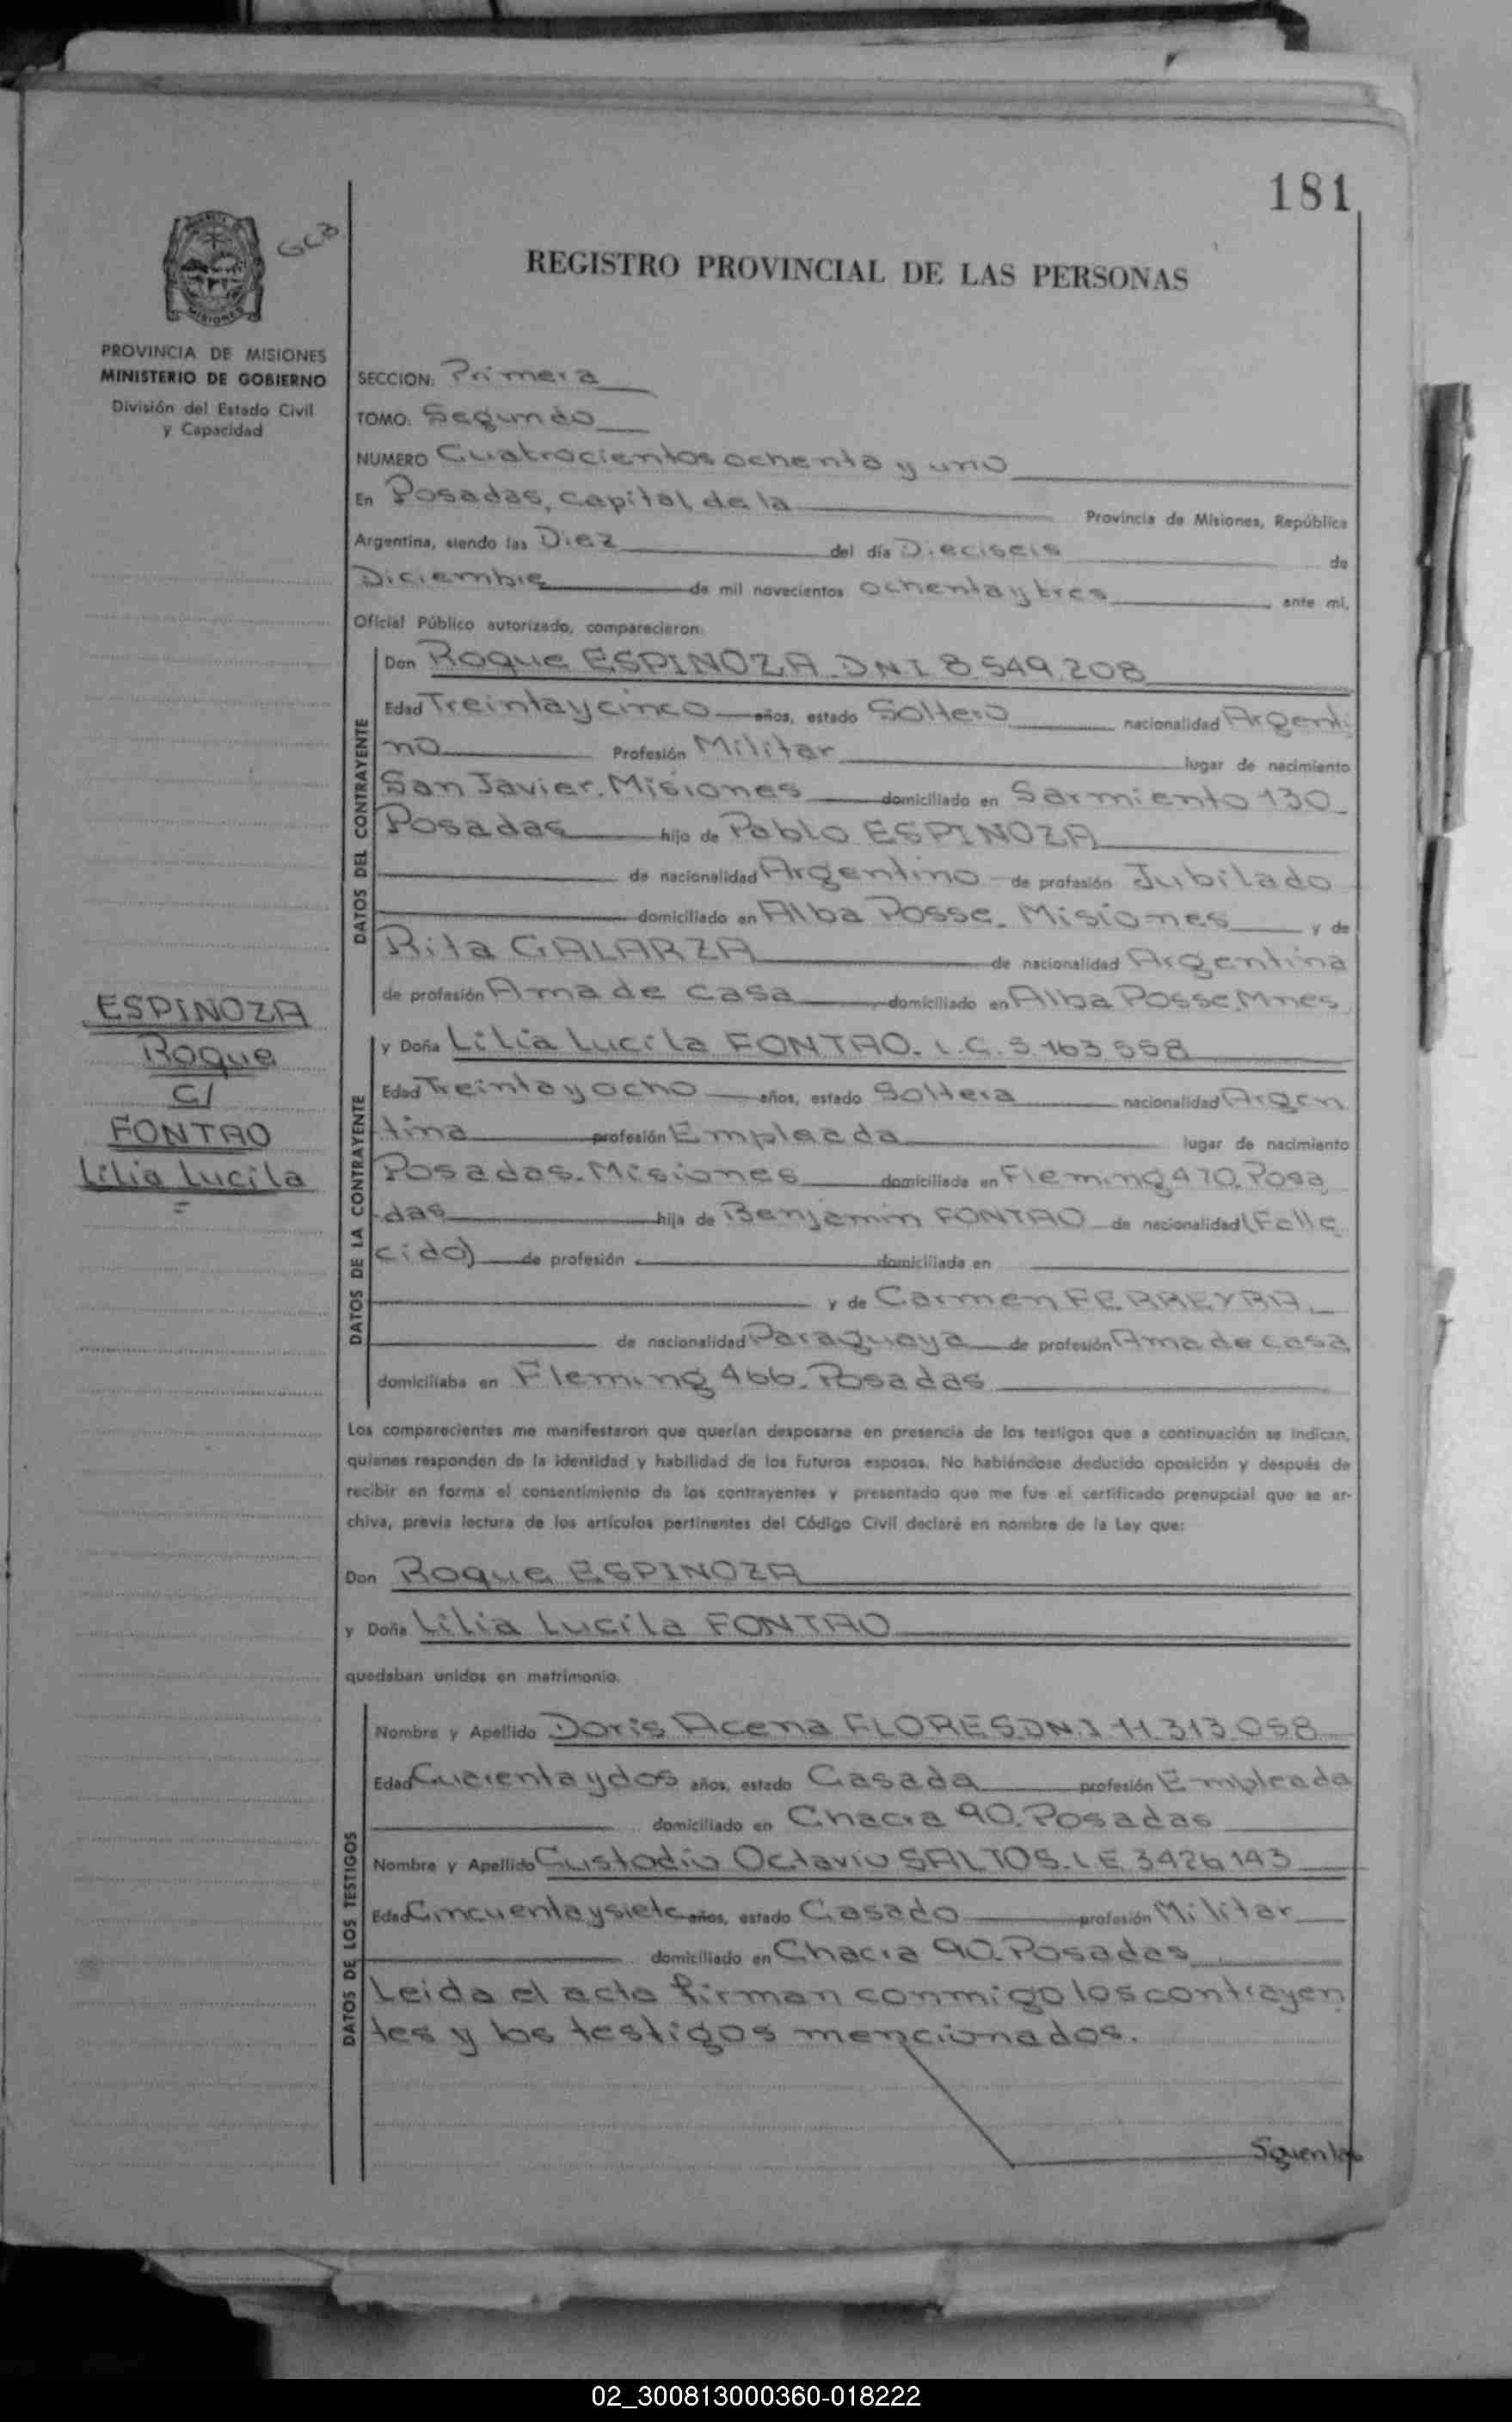 181
GCB
MISIONES
REGISTRO PROVINCIAL DE LAS PERSONAS
PROVINCIA DE MISIONES
MINISTERIO DE GOBIERNO
División del Estado Civil
y Capacidad
SECCION: Primera
TOMO: Segundo
NUMERO Cuatrocientos ochenta y uno
En Posadas, capital de la Provincia de Misiones, República
Argentina, siendo las Diez del día Dieciseis de
Diciembre de mil novecientos ochenta y tres ante mi,
Oficial Público autorizado, comparecieron:
DATOS DEL CONTRAYENTE
Don Roque ESPINOZA DNI 8.549.208
Edad Treinta y cinco años, estado Soltero nacionalidad Argenti
no Profesión Militar lugar de nacimiento
San Javier. Misiones domiciliado en Sarmiento 130
Posadas hijo de Pablo ESPINOZA
de nacionalidad Argentino de profesión Jubilado
domiciliado en Alba Posse. Misiones y de
Rita GALARZA de nacionalidad Argentina
de profesión Ama de casa domiciliado en Alba Posse. Mnes
ESPINOZA
Roque
C/
FONTAO
Lilia Lucila
DATOS DE LA CONTRAYENTE
y Doña Lilia Lucila FONTAO. L.C. 5.163.558
Edad Treinta y ocho años, estado Soltera nacionalidad Argen
tina profesión Empleada lugar de nacimiento
Posadas. Misiones domiciliada en Fleming 470. Posa
das hija de Benjamin FONTAO de nacionalidad (Falle
cido) de profesión domiciliada en
y de Carmen FERREYRA
de nacionalidad Paraguaya de profesión Ama de casa
domiciliaba en Fleming 466. Posadas
Los comparecientes me manifestaron que querían desposarse en presencia de los testigos que a continuación se indican,
quienes responden de la identidad y habilidad de los futuros esposos. No habiéndose deducido oposición y después de
recibir en forma el consentimiento de los contrayentes y presentado que me fue el certificado prenupcial que se ar-
chiva, previa lectura de los artículos pertinentes del Código Civil declaré en nombre de la Ley que:
Don Roque ESPINOZA
y Doña Lilia Lucila FONTAO
quedaban unidos en matrimonio.
DATOS DE LOS TESTIGOS
Nombre y Apellido Doris Acena FLORES. DN.I 11.313.058
Edad Cuarenta y dos años, estado Casada profesión Empleada
domiciliado en Chacra 90. Posadas
Nombre y Apellido Custodio Octavio SALTOS. L E 3426143
Edad Cincuenta y siete años, estado Casado profesión Militar
domiciliado en Chacra 90. Posadas
Leida el acta firman conmigo los contrayen
tes y los testigos mencionados.
02_300813000360-018222